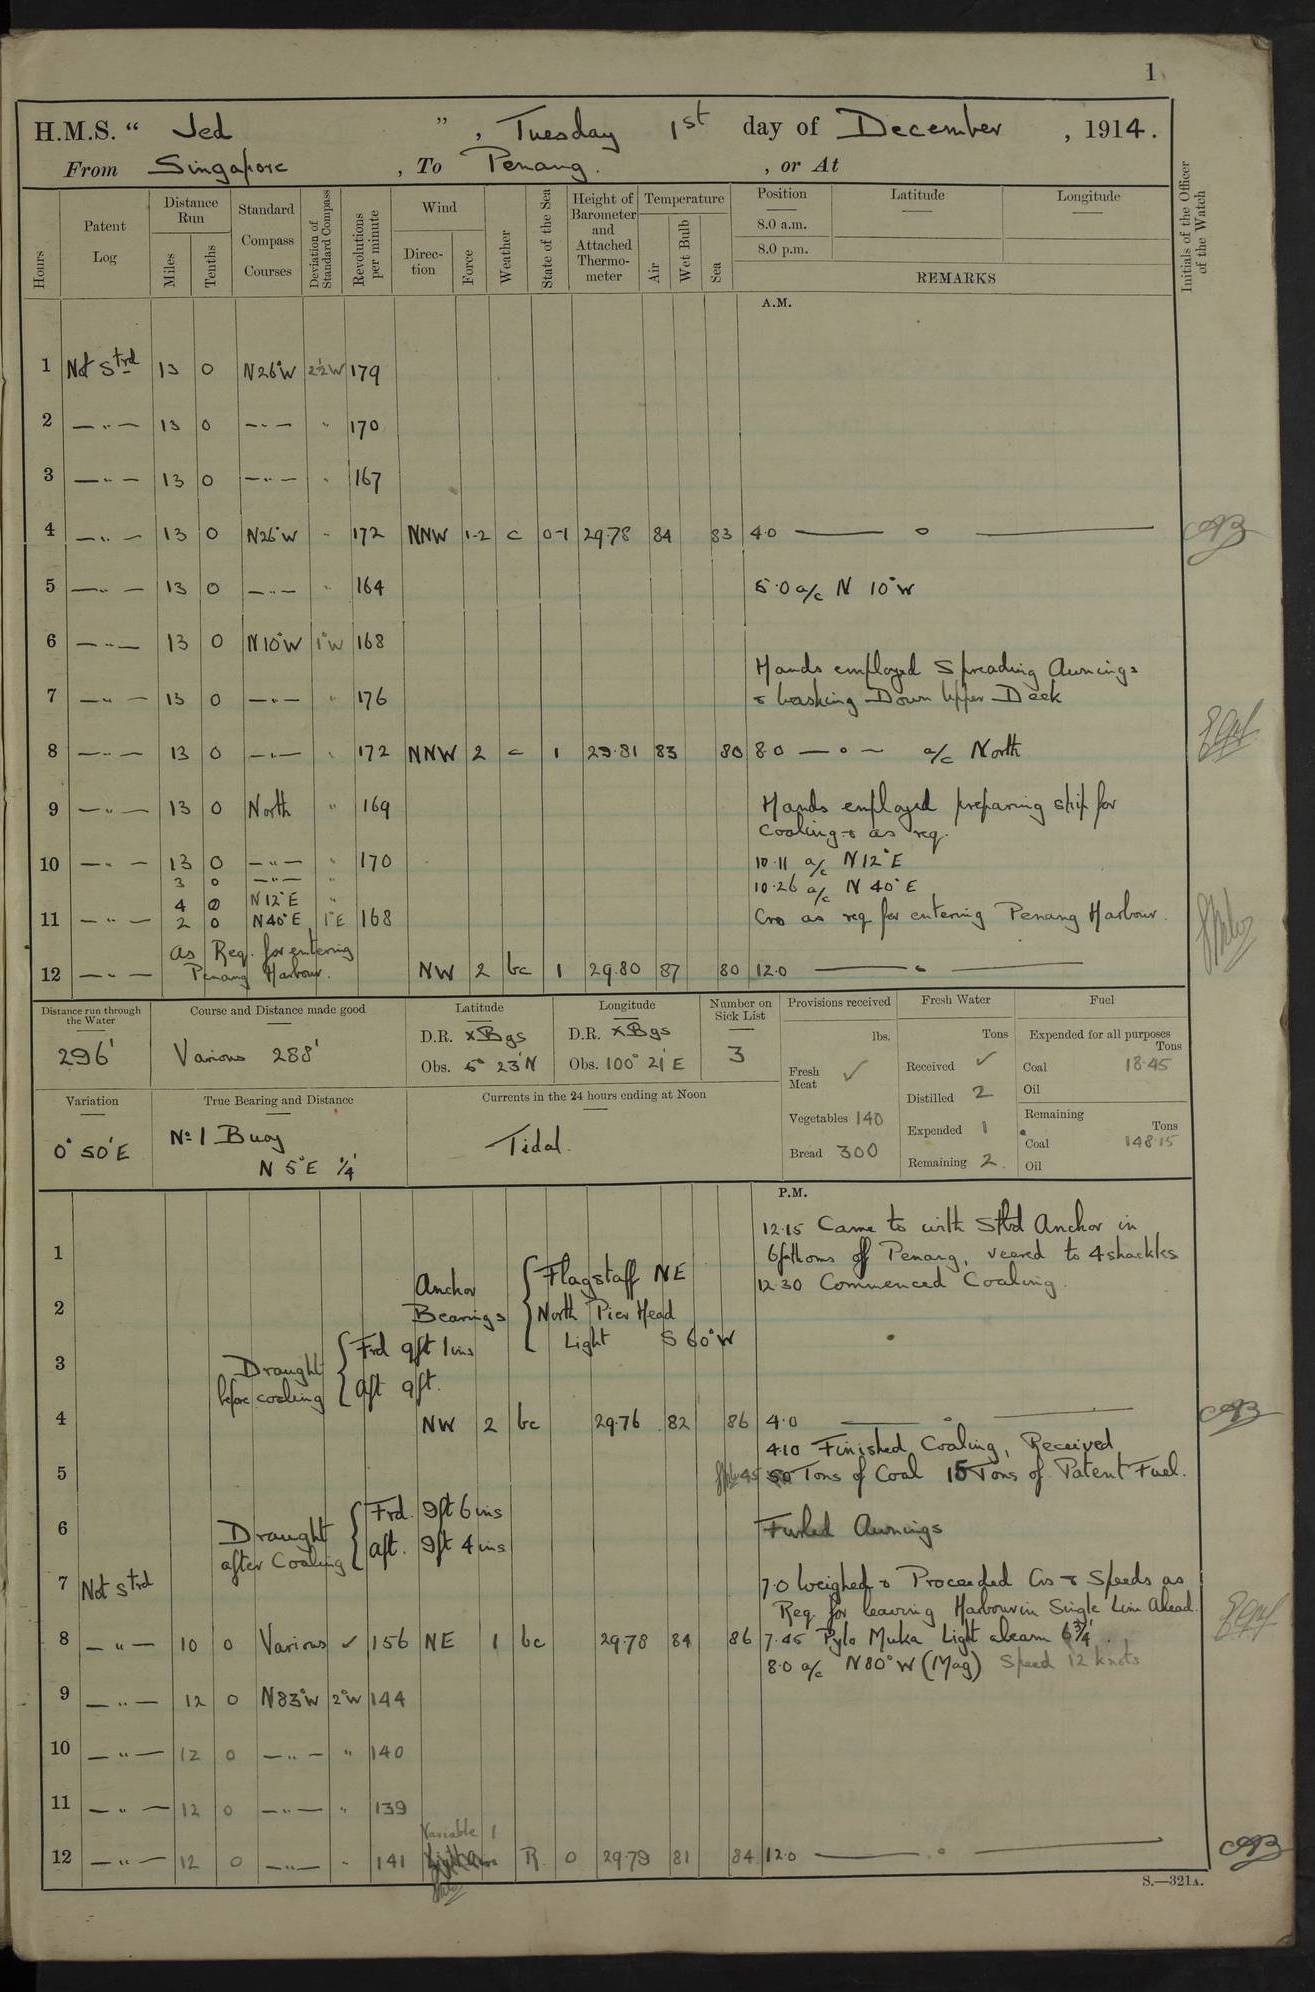 1
H.M.S. “ Jed ” , Tuesday 1st day of December , 1914.
From Singapore , To Penang. , or At
Hours
Patent Log
Distance Run
Miles
Tenths
Standard Compass Courses
Deviation of Standard Compass
Revolutions per minute
Wind
Direc-tion
Force
Weather
State of the Sea
Height of Barometer and Attached Thermo-meter
Temperature
Air
Wet Bulb
Sea
Position
Latitude
Longitude
8.0 a.m.
8.0 p.m.
REMARKS
Initials of the Officer of the Watch
A.M.
1 Not Strd 13 0 N26°W 2½W 179
2 —"— 13 0 —"— " 170
3 —"— 13 0 —"— " 167
4 —"— 13 0 N26°W " 172 NNW 1-2 c 0-1 29.78 84 83 4.0 —— o ——
5 —"— 13 0 —"— " 164 5.0 a/c N 10°W
6 —"— 13 0 N10°W 1°W 168
Hands employed Spreading Awnings
7 —"— 13 0 —"— " 176 & Washing Down Upper Deck
8 —"— 13 0 —"— " 172 NNW 2 c 1 29.81 83 80 8.0 — o — a/c North
9 —"— 13 0 North " 169 Hands employed preparing ship for
Coaling & as req.
10 —"— 13 0 —"— " 170 10.11 a/c N12°E
3 0 —"— " 10.26 a/c N 40°E
4 0 N12°E "
11 —"— 2 0 N40°E 1°E 168 Cros as req for entering Penang Harbour.
as Req. for entering
12 —"— Penang Harbour. NW 2 bc 1 29.80 87 80 12.0 —— o ——
Distance run through the Water
296'
Course and Distance made good
Various 288'
Latitude
D.R. xBgs
Obs. 5° 23'N
Longitude
D.R. xBgs
Obs. 100° 21'E
Number on Sick List
3
Provisions received
lbs.
Fresh Meat ✓
Vegetables 140
Bread 300
Fresh Water
Tons
Received ✓
Distilled 2
Expended 1
Remaining 2.
Fuel
Expended for all purposes
Tons
Coal 18.45
Oil
Remaining
Tons
Coal 148.15
Oil
Variation
0° 50'E
True Bearing and Distance
No 1 Buoy
N 5°E ¼'
Currents in the 24 hours ending at Noon
Tidal.
P.M.
12.15 Came to with Stbd Anchor in
1 6 fathoms off Penang, veered to 4 shackles
12.30 Commenced Coaling.
2 Anchor Bearings { Flagstaff NE
North Pier Head
Light S 60°W
3 Draught before coaling { Frd 9ft 1ins
aft 9ft.
4 NW 2 bc 29.76 82 86 4.0 —— o ——
4.10 Finished Coaling, Received
5 45 50 Tons of Coal 15 Tons of Patent Fuel.
6 Draught after Coaling { Frd. 9ft 6ins
aft. 9ft 4ins
Furled Awnings
7 Not Strd 7.0 Weighed & Proceeded Cos & Speeds as
Req. for leaving Harbour in Single Line Ahead.
8 —"— 10 0 Various ✓ 156 NE 1 bc 29.78 84 86 7.45 Pylo Muka Light abeam 6¾'.
8.0 a/c N80°W (Mag) Speed 12 knots
9 —"— 12 0 N83°W 2°W 144
10 —"— 12 0 —"— " 140
11 —"— 12 0 —"— " 139
Variable 1
12 —"— 12 0 —"— " 141 Light Airs R 0 29.79 81 84 12.0 —— o ——
S.—321A.